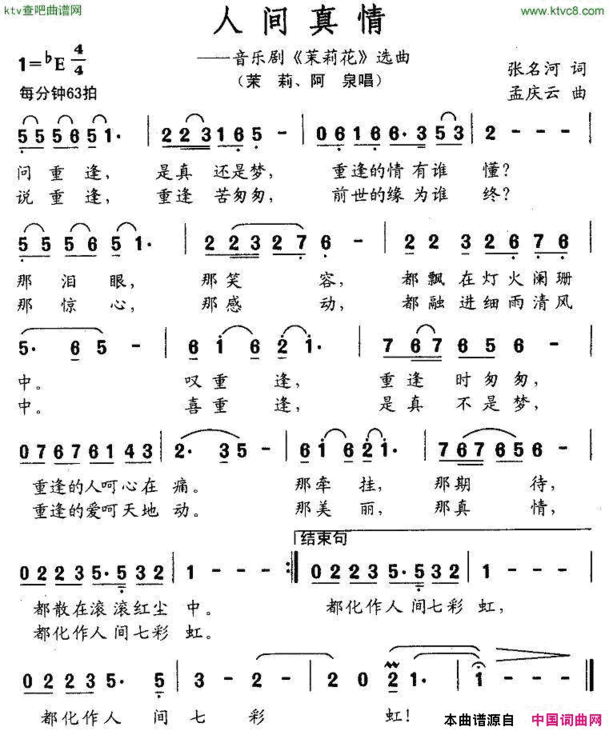 ktv查吧曲谱网
人间真情
www.ktvc8.com
——音乐剧《茉莉花》选曲
(茉 莉、阿 泉唱)
1=♭E 4/4
每分钟63拍
张名河 词
孟庆云 曲
5 5 5 6 5 1· | 2 2 3 1 6 5 - | 0 6 1 6 6· 3 5 3 | 2 - - - |
问重逢， 是真 还是梦， 重逢的情有谁 懂？
说重逢， 重逢 苦匆匆， 前世的缘为谁 终？
5 5 5 6 5 1· | 2 2 2 3 2 7 6 - | 2 2 3 2 6 7 6 |
那 泪 眼， 那笑 容， 都飘在灯火阑珊
那 惊 心， 那感 动， 都融进细雨清风
5· 6 5 - | 6 1 6 2 1· | 7 6 7 6 5 6 - |
中。 叹重 逢， 重逢 时匆匆，
中。 喜重 逢， 是真 不是梦，
0 7 6 7 6 6 1 1 4 3 | 2· 3 5 - | 6 1 6 2 1· | 7 6 7 6 5 6 - |
重逢的人呵心在 痛。 那牵 挂， 那期 待，
重逢的爱呵天地 动。 那美 丽， 那真 情，
结束句
0 2 2 3 5· 5 3 2 | 1 - - - :‖ 0 2 2 3 5· 5 3 2 | 1 - - - |
都散在滚滚红尘 中。 都化作人间七彩 虹，
都化作人间七彩 虹。
0 2 2 3 5· 5 | 3 - 2 - | 2 0 2 1· | 1 - - - ‖
都化作人 间 七 彩 虹！
本曲谱源自 中国词曲网